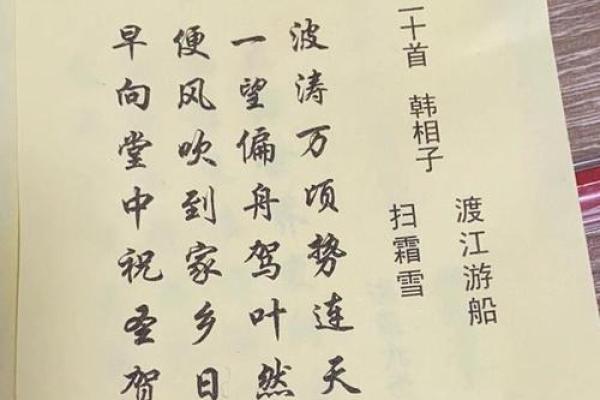 二十首 韩相子
渡江游船
扫霜雪
波涛万顷势连天
一望偏舟驾叶然
便风吹到家乡日
早向堂中祝圣贺